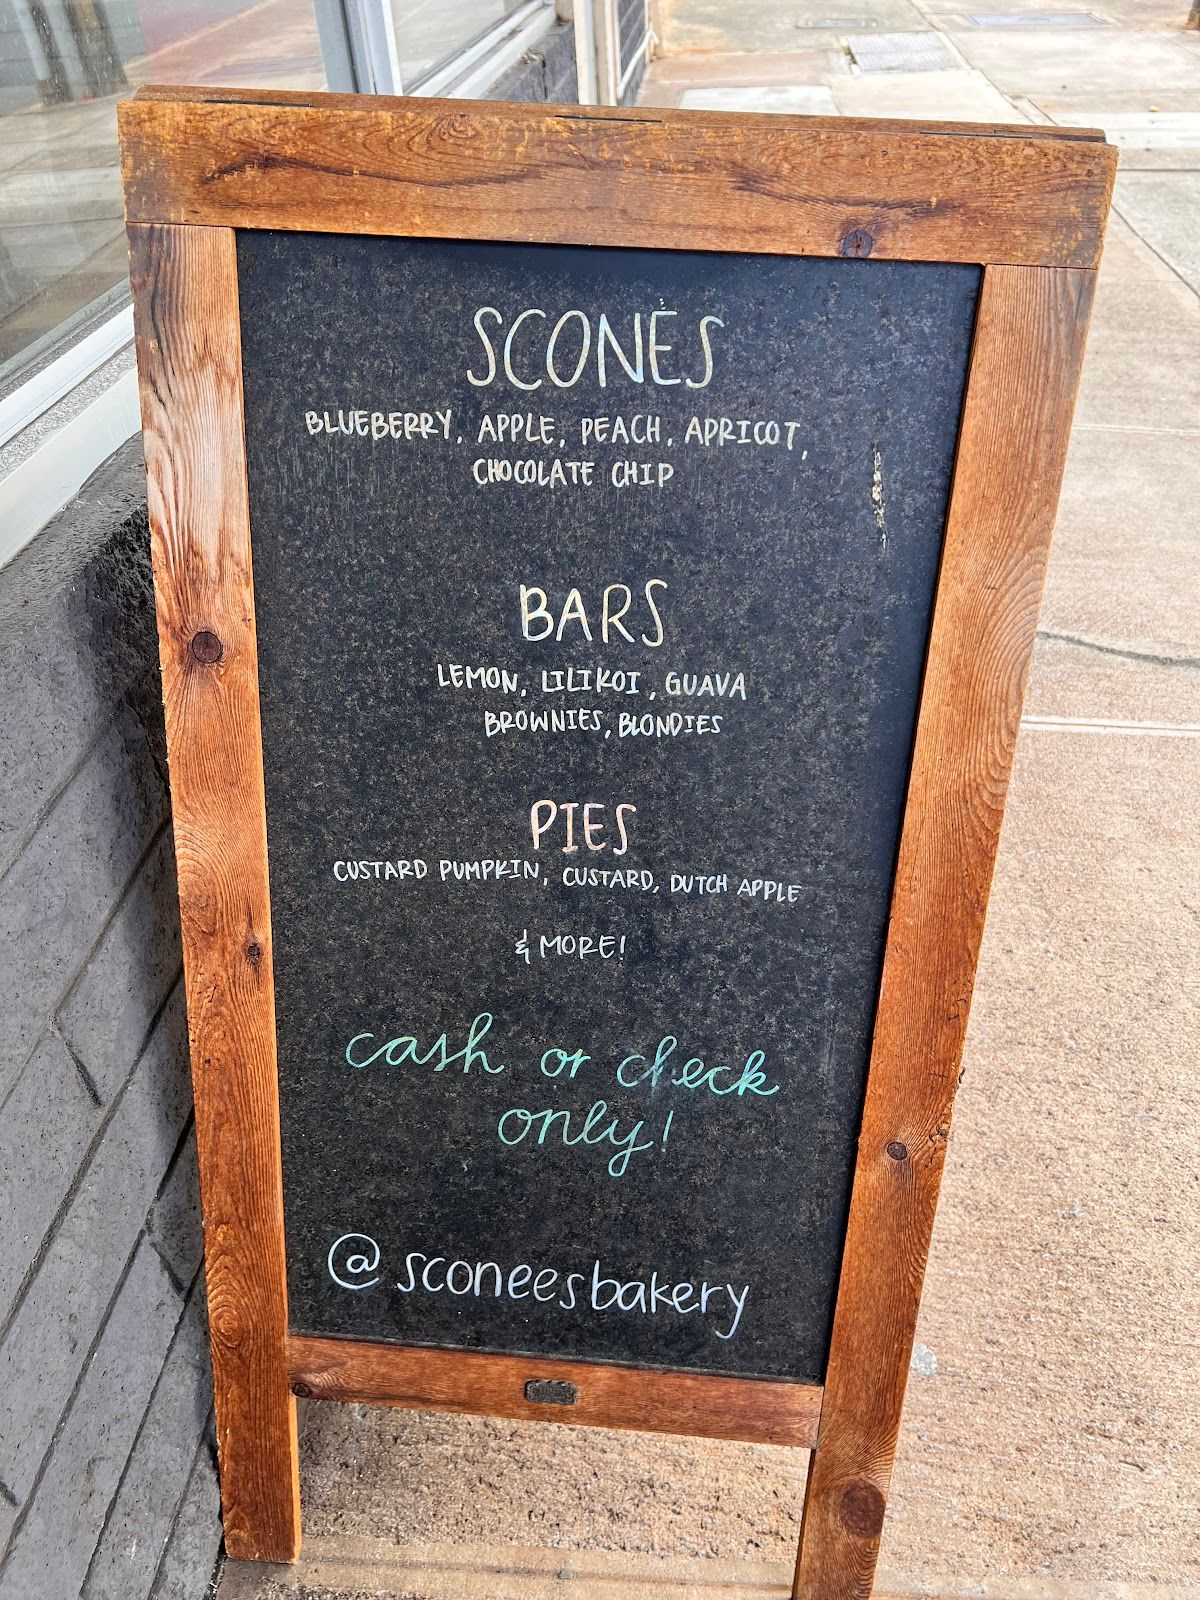 SCONES
BLUEBERRY, APPLE, PEACH, APRICOT,
CHOCOLATE CHIP
BARS
LEMON, LILIKOI, GUAVA
BROWNIES, BLONDIES
PIES
CUSTARD PUMPKIN, CUSTARD, DUTCH APPLE
& MORE!
cash or check
only!
@sconeesbakery